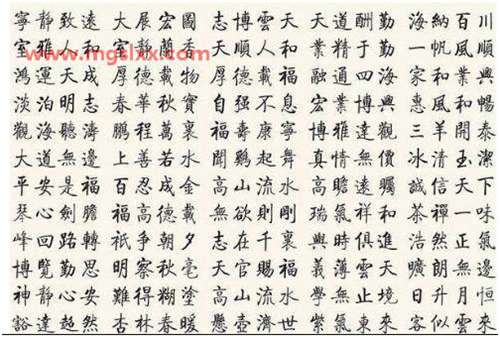 寧靜致遠 大展宏圖 志博雲天 天道酬勤 海納百川
室雅人和 室靜蘭香 順人和 業精于勤 一帆風順
鴻運天成 厚德載物 厚德載福 融通四海 家興業興
淡泊明志 春華秋實 自强不息 宏業博興 惠風和暢
觀海聽濤 鵬程萬裏 福壽康寧 博雅達觀 三羊開泰
大道無邊 上善若水 聞鷄起舞 真情無價 冰清玉潔
平安是福 百忍成金 高山流水 高瞻遠矚 誠信天下
琴心劍膽 福高德載 無欲則剛 瑞氣祥和 茶禪一味
峰回路轉 祇爭朝夕 志在千裏 興時俱進 浩然正氣
博覽勤思 明察秋毫 天官賜福 義薄雲天 曠朗無邊
神静心安 難得糊塗 高山流水 學無止境 日升月恒
豁達超然 杏林春暖 懸壺濟世 紫氣東來 客似雲來
www.mgslxx.com